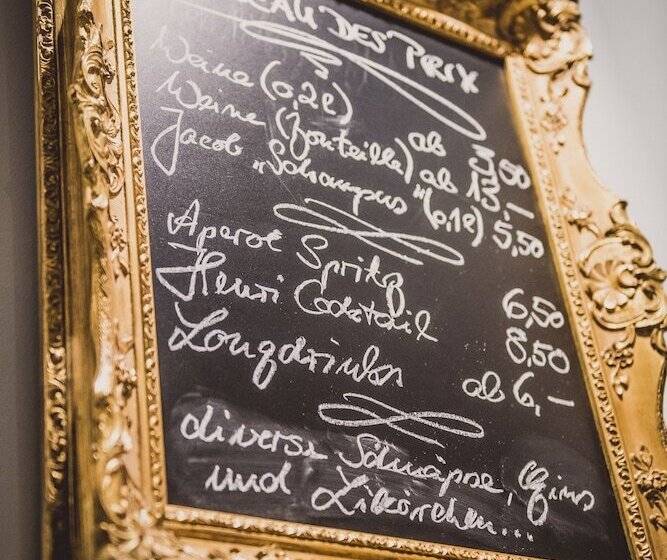 DES PRIX
Weine (0,2l) ab 3,50
Weine (Bouteille) ab 13,—
Jacob „Schampus“ (0,1l) 5,50
Aperol Spritz 6,50
Henri Cocktail 8,50
Longdrinks ab 6,—
diverse Schnäpse, Gins
und Likörchen...